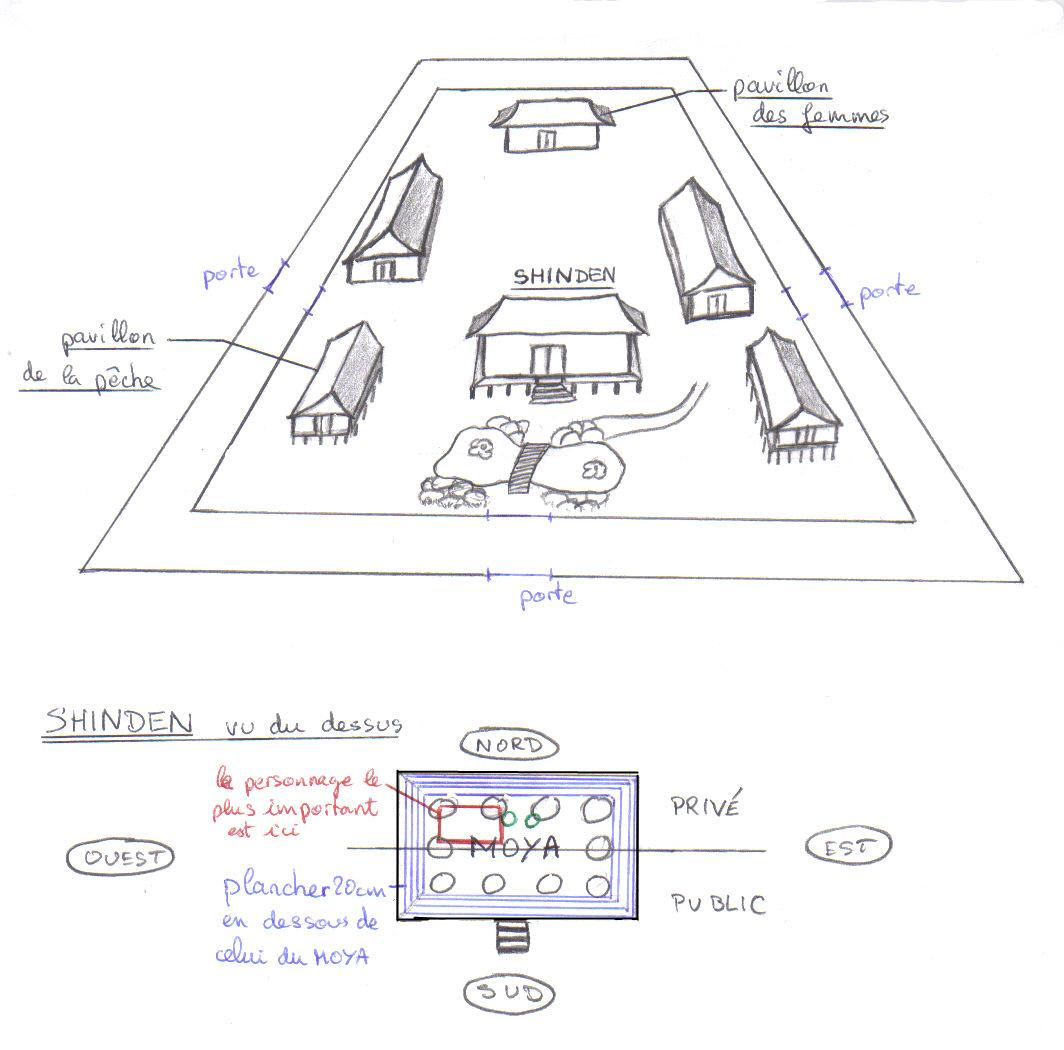 pavillon
des femmes
SHINDEN
porte
porte
pavillon
de la pêche
porte
SHINDEN vu du dessus
NORD
le personnage le
plus important
est ici
PRIVÉ
OUEST
MOYA
EST
plancher 20cm
en dessous de
celui du MOYA
PUBLIC
SUD